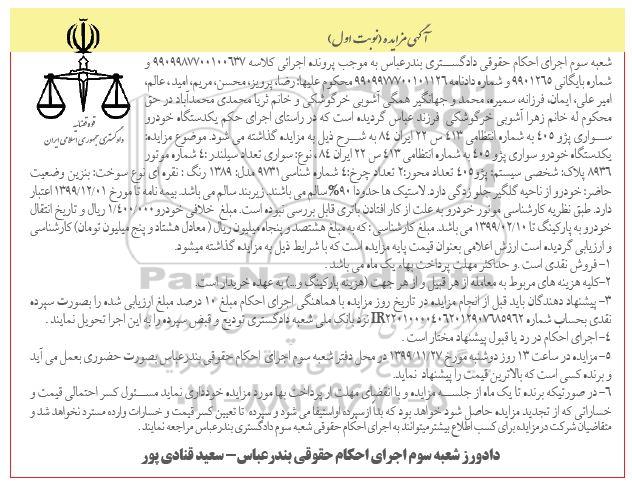 آگهی مزایده (نوبت اول)
قوه قضاییه
دادگستری جمهوری اسلامی ایران
شعبه سوم اجرای احکام حقوقی دادگستری بندرعباس به موجب پرونده اجرائی کلاسه ۹۹۰۹۹۸۷۷۰۰۱۰۰۶۳۷ و
شماره بایگانی ۹۹۰۱۲۶۵ و شماره دادنامه ۹۹۰۹۹۷۷۷۰۰۱۰۱۱۲۶ محکوم علیها: رضا، پرویز، محسن، مریم، امید، عالم،
امیر علی، ایمان، فرزانه، سمیره، محمد و جهانگیر همگی آشوبی خرگوشکی و خانم ثریا محمدی محمدآباد در حق
محکوم له خانم زهرا آشوبی خرگوشکی فرزند عباس گردیده است که در راستای اجرای حکم یکدستگاه خودرو
سواری پژو ۴۰۵ به شماره انتظامی ۴۱۳ س ۲۲ ایران ۸۴ به شرح ذیل به مزایده گذاشته می شود. موضوع مزایده:
یکدستگاه خودرو سواری پژو ۴۰۵ به شماره انتظامی ۴۱۳ س ۲۲ ایران ۸۴، نوع: سواری تعداد سیلندر: ۴ شماره موتور
۸۹۳۶ پلاک: شخصی سیستم: پژو ۴۰۵ تعداد محور: ۲ تعداد چرخ: ۴ شماره شناسی ۹۷۳۱ مدل: ۱۳۸۹ رنگ: نقره ای نوع سوخت: بنزین وضعیت
حاضر: خودرو از ناحیه گلگیر جلو زدگی دارد. لاستیک ها حدودا ۹۰% سالم می باشند. زیربند سالم می باشد. بیمه نامه تا مورخ ۱۳۹۹/۱۲/۰۱ اعتبار
دارد. طبق نظریه کارشناسی موتور خودرو به علت از کار افتادن باتری قابل بررسی نبوده است. مبلغ خلافی خودرو ۱/۴۰۰/۰۰۰ ریال و تاریخ انتقال
خودرو به پارکینگ تا ۱۳۹۹/۰۲/۱۰ می باشد. مبلغ کارشناسی: که به مبلغ هشتصد و پنجاه میلیون ریال (معادل هشتاد و پنج میلیون تومان) کارشناسی
و ارزیابی گردیده است ارزش اعلامی بعنوان قیمت پایه مزایده است که با شرایط ذیل به مزایده گذاشته میشود.
۱- فروش نقدی است. و حداکثر مهلت پرداخت بهاء یک ماه می باشد.
۲-کلیه هزینه های مربوط به معامله از هر قبیل و از هر جهت (هزینه پارکینگ و...) به عهده خریدار است.
۳- پیشنهاد دهندگان باید قبل از انجام مزایده در تاریخ روز مزایده با هماهنگی اجرای احکام مبلغ ۱۰ درصد مبلغ ارزیابی شده را بصورت سپرده
نقدی بحساب شماره IR۲۲۰۱۰۰۰۰۴۰۶۲۰۱۲۹۰۷۶۸۵۹۶۲ نزد بانک ملی شعبه دادگستری تودیع و قبض سپرده را به این اجرا تحویل نمایند.
۴- اجرای احکام در رد یا قبول پیشنهاد مختار است.
۵- مزایده در ساعت ۱۳ روز دوشنبه مورخ ۱۳۹۹/۱۱/۲۷ در محل دفتر شعبه سوم اجرای احکام حقوقی بندرعباس بصورت حضوری بعمل می آید
و برنده کسی است که بالاترین قیمت را پیشنهاد نماید.
۶- در صورتیکه برنده تا یک ماه از جلسه مزایده و یا انقضای مهلت از پرداخت بها مورد مزایده خودداری نماید مسئول کسر احتمالی قیمت و
خساراتی که از تجدید مزایده حاصل شود خواهد بود که بدا از سپرده او استیفا می شود و سپرده تا تعیین کسر قیمت و خسارات وارده مسترد نخواهد شد و
متقاضیان شرکت در مزایده برای کسب اطلاع بیشتر میتوانند به اجرای احکام حقوقی شعبه سوم دادگستری بندرعباس مراجعه نمایند.
دادورز شعبه سوم اجرای احکام حقوقی بندرعباس- سعید قنادی پور
ParsNamadData